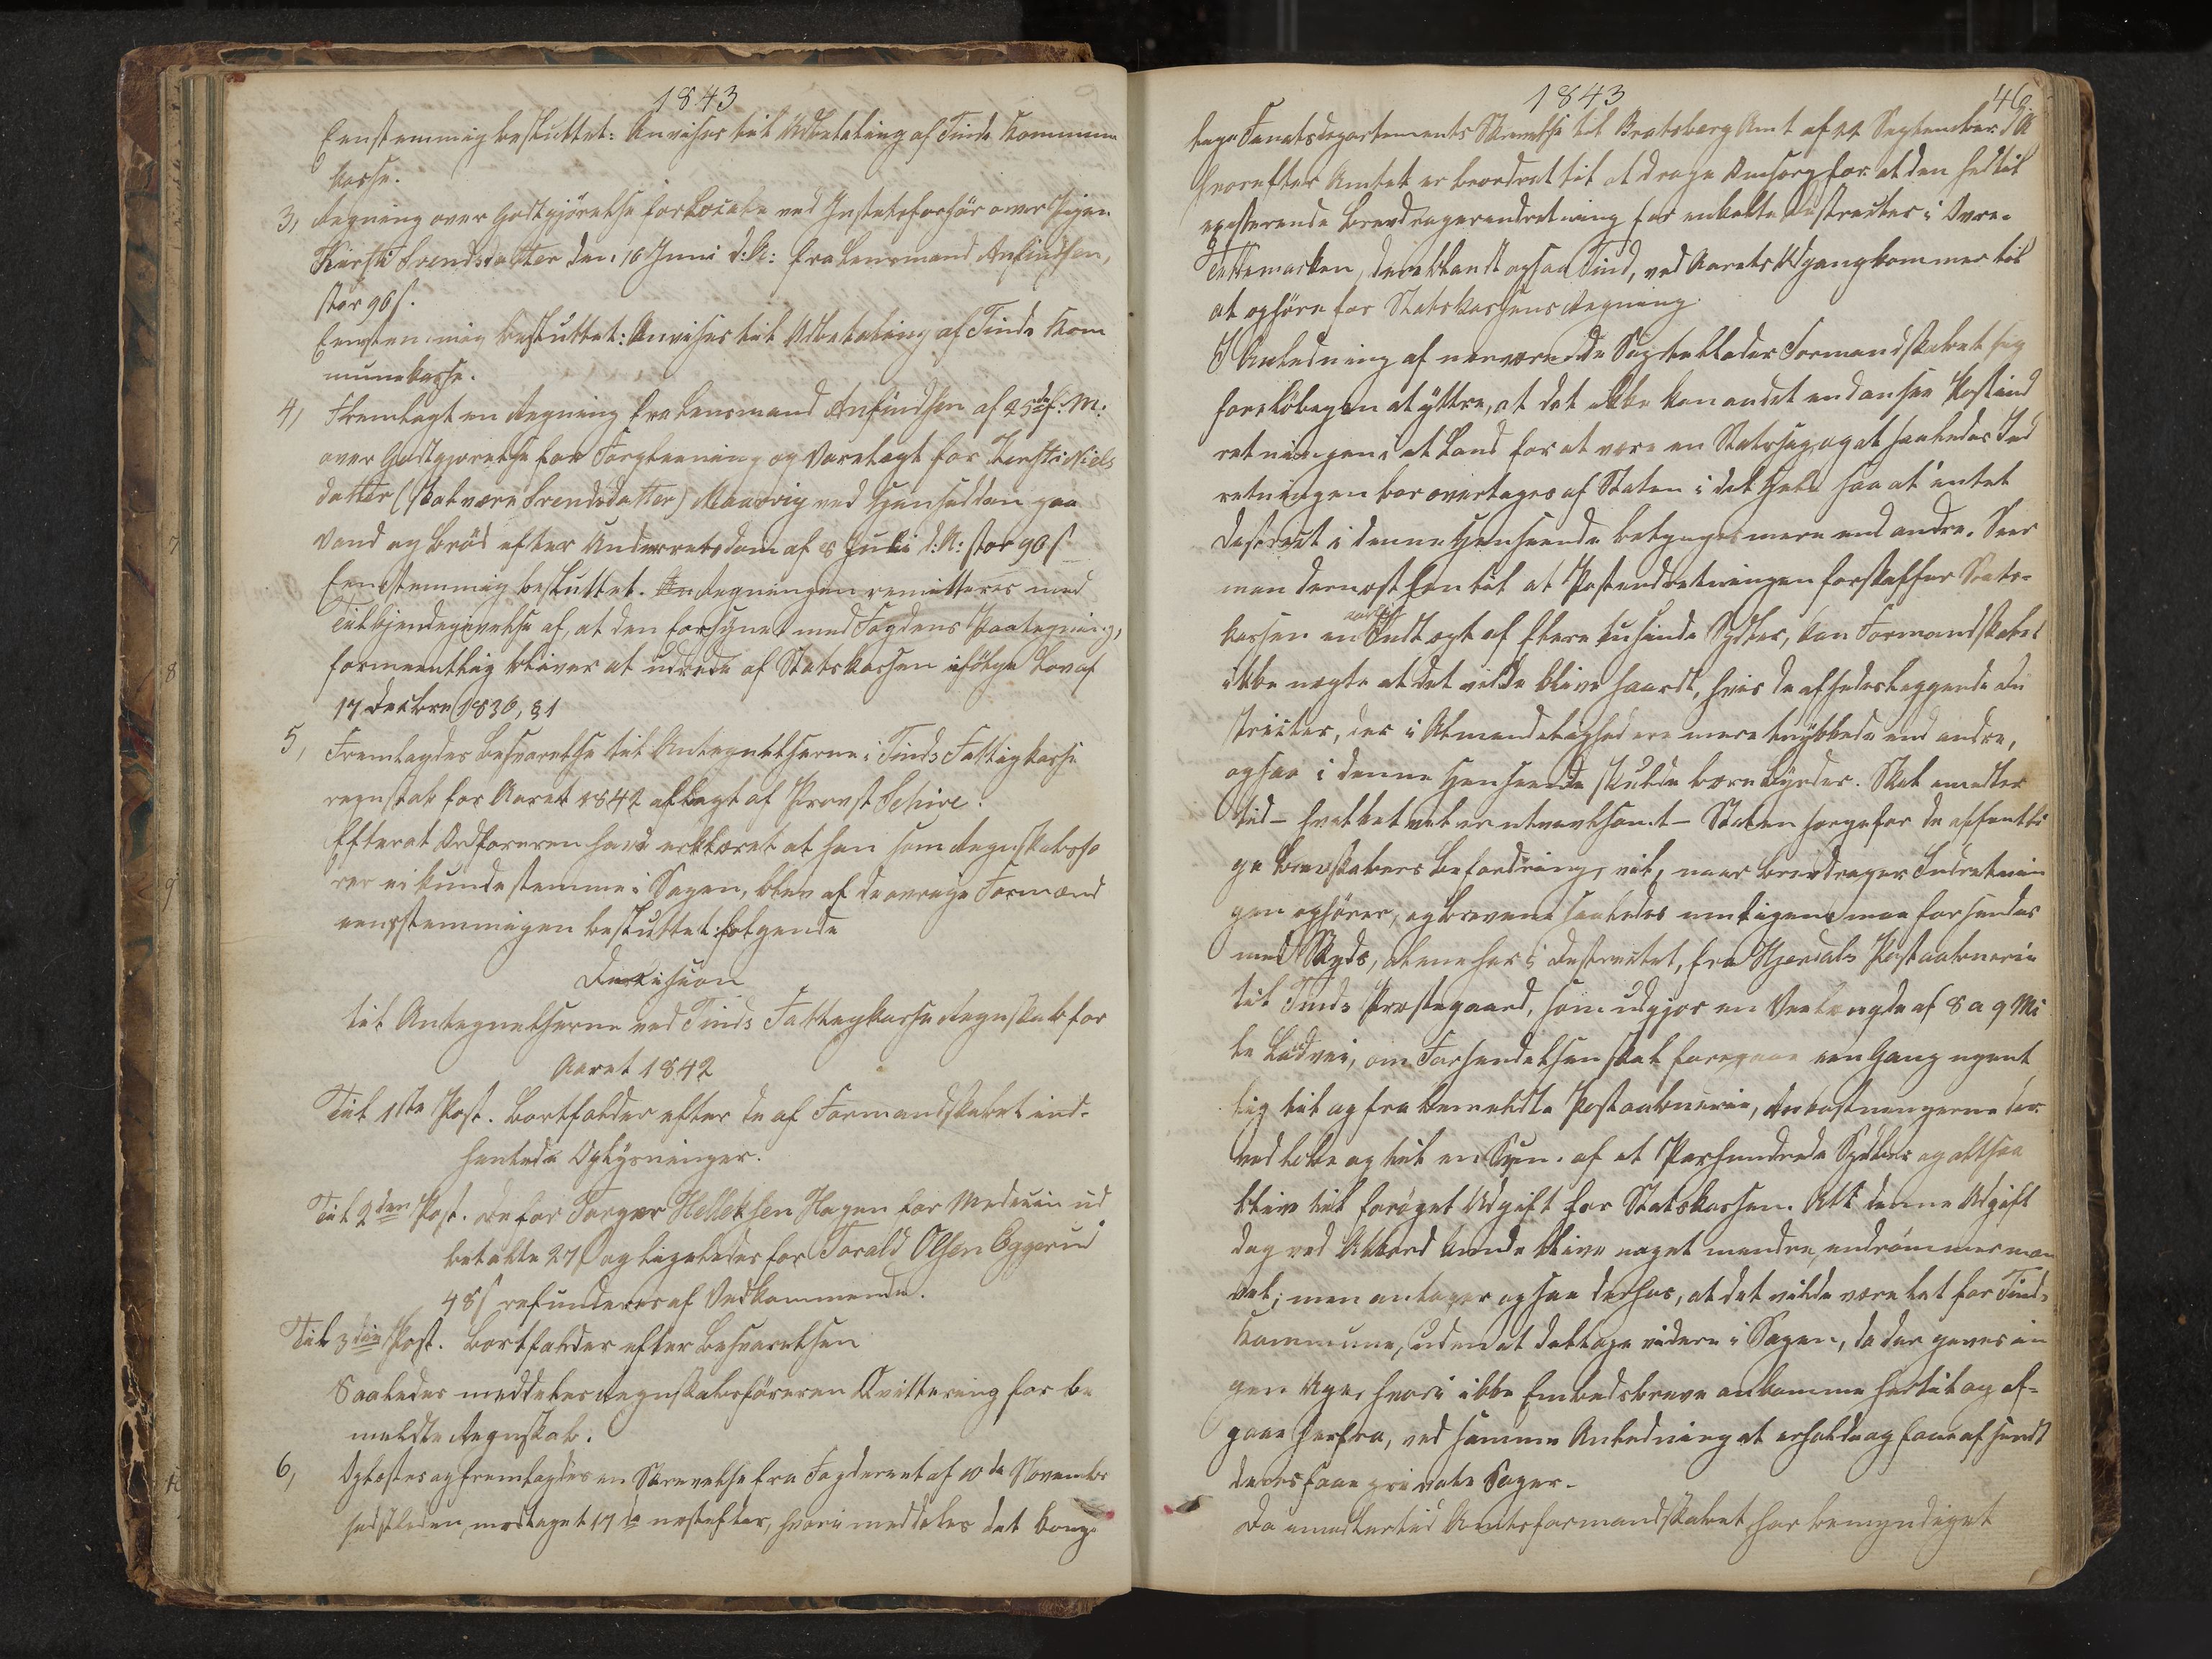 1843
Eenstemmig besluttet: Anvises til Udbetaling af Tinds Kommune
kasse.
3, Regning over Godtgjørelse for Locale ved Justitsforhør over Pigen
Kirsti Svendsdatter den 10 Juni d: A: fra Lensmand Anfindsen,
stor 96 s.
Eenstemmig besluttet: Anvises til Udbetaling af Tinds Kom
munekasse.
4, Fremlagt en Regning fra Lensmand Anfindsen af 25de f: M:
over Godtgjørelse for Forpleining og Varetægt for Kirsti Niels
datter (skal være Svendsdatter) Maarvig ved Hensidden paa
Vand og Brød efter Underretsdom af 8 Juli d: A: stor 90 s
Eenstemmig besluttet. Regningen remitteres med
Tilkjendegivelse af, at den forsynet med Fogdens Paategning,
formeentlig bliver at udrede af Statskassen ifølge Lov af
17 Decbr 1836, § 1
5, Fremlagdes Besvarelse til Antegnelserne i Tinds Fattigkasse
regnskab for Aaret 1842 aflagt af Provst Schive.
Efterat Ordføreren havde erklæret at han som Regnskabsfø
rer ei kunde stemme i Sagen, blev af de øvrige Formænd
eenstemmigen besluttet følgende
Decision
til Antegnelserne ved Tinds Fattigkasse Regnskab for
Aaret 1842
Til 1ste Post. Bortfalder efter de af Formandskabet ind-
hentede Oplysninger.
Til 2den Post. De for Torger Helleksen Hagen for Medicin ud
betalte 27 s og ligeledes for Torald Olsen Eggerud
48 s refunderes af Vedkommende.
Til 3die Post. Bortfalder efter Besvarelsen
Saaledes meddeles Regnskabsføreren Qvittering for be
meldte Regnskab.
6, Oplæstes og fremlagdes en Skrivelse fra Fogderiet af 10de November
sidstleden, modtaget 17de næstefter, hvori meddeles det Konge
1843
46
lige Finantsdepartements Skrivelse til Bratsberg Amt af 22 September d: A:
hvorefter Amtet er beordret til at drage Omsorg for at den hidtil
existerende Brevdragerindretning for enkelte Districter i Øvre-
Tellemarken, deriblandt ogsaa Tind, ved Aarets Udgang kommer til
at ophøre for Statskassens Regning.
I Anledning af nærværende Sag tillader Formandskabet sig
foreløbigen at yttre, at det ikke kan andet end ansee Postind
retningen i et Land for at være en Statssag, og at saaledes Ind
retningen bør overtages af Staten i det Hele saa at intet
District i denne Henseende betynges mere end andre. Seer
man dernæst hen til at Postindretningen forskaffer Stats-
kassen en aarlig Indtægt af flere tusinde Spdler, kan Formandskabet
ikke nægte at det vilde blive haardt, hvis de afsidesliggende Di
stricter, der i Almindelighed ere mere trykkede end andre,
ogsaa i denne Henseende skulde bære Byrder. Skal imidler
tid – hvilket vel er utvivlsomt – Staten sørge for de offentli
ge Brevskabers Befordring, vil, naar Brevdrager Indretnin
gen ophører, og Brevene saaledes maa forsendes
med Skyds, alene her i Districtet, fra Hjerdals Postaabneri
til Tinds Præstegaard, som udgjør en Veilængde af 8 a 9 Mi
le Landvei, om Forsendelsen skal foregaae een Gang ugent
lig til og fra bemeldte Postaabneri, Omkostningerne der
ved løbe op til en Sum af et Parhundrede Spdler og altsaa
blive til forøget Udgift for Statskassen. At denne Udgift
dog ved Akkord kunde blive noget mindre, indrømmer man
vel; men antager ogsaa derhos, at det vilde være let for Tinds
Kommune, uden at deltage videre i Sagen, da der gives in
gen Uge, hvori ikke Embedsbreve ankomme hertil og af-
gaae herfra, ved samme Anledning at erholde og faae afsendt
deres faae private Sager.
Da imidlertid Amtsformandskabet har bemyndiget